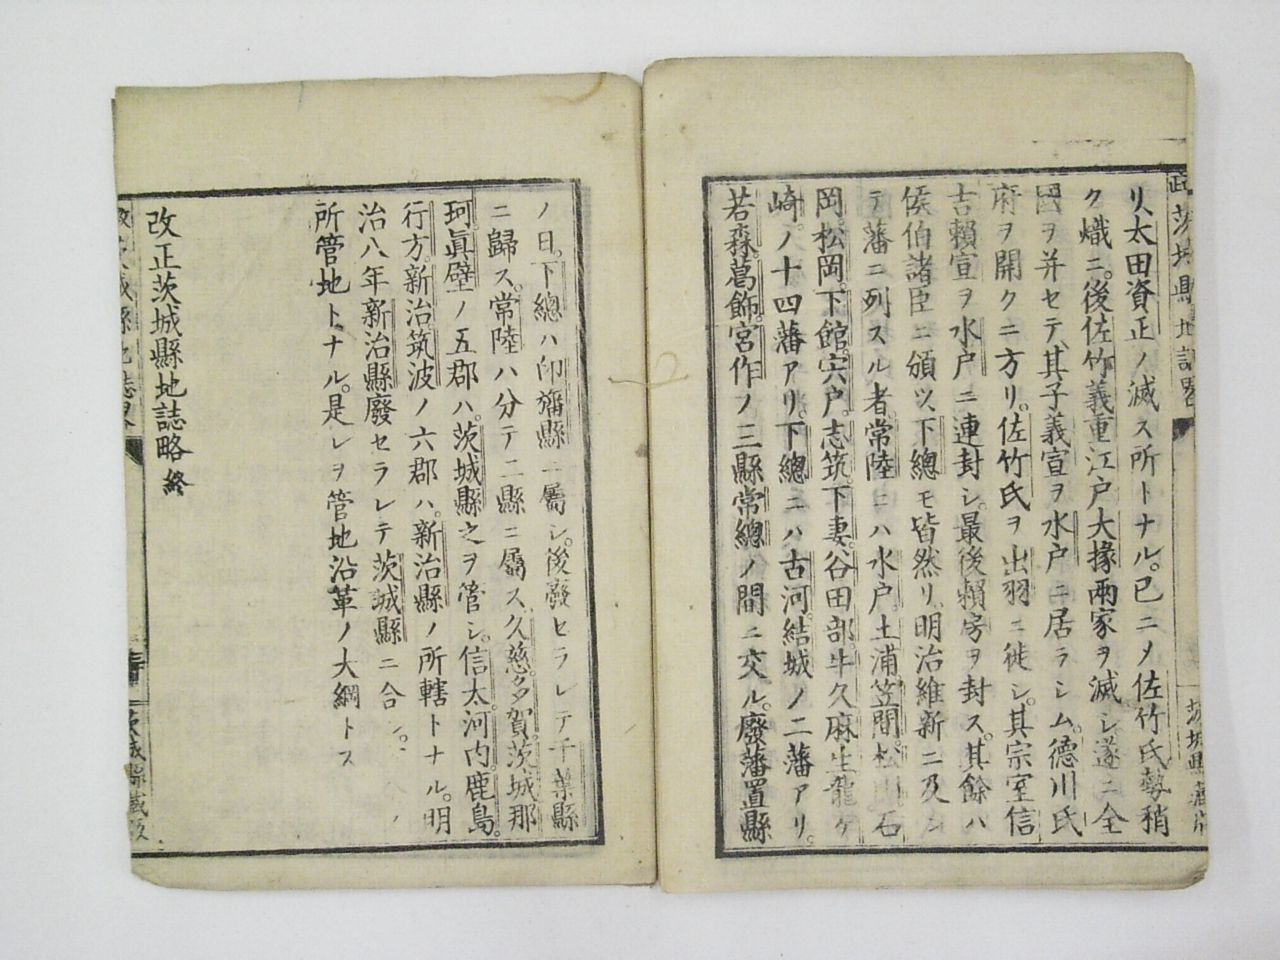 リ太田資正ノ滅ス所トナル。已ニメ佐竹氏勢稍
ク熾ニ。後佐竹義重江戸大掾兩家ヲ滅シ遂ニ全
國ヲ并セテ其子義宣ヲ水戸ニ居ラシム。德川氏
府ヲ開クニ方リ。佐竹氏ヲ出羽ニ徙シ。其宗室信
吉賴宣ヲ水戸ニ連封シ。最後賴房ヲ封ス。其餘ハ
侯伯諸臣ニ頒ツ。下總モ皆然リ。明治維新ニ及ン
テ藩ニ列スル者。常陸ニハ水戸。土浦。笠間。松川。石
岡。松岡。下館。宍戸。志筑。下妻。谷田部。牛久。麻生。龍ケ
崎。ノ十四藩アリ。下總ニハ古河。結城ノ二藩アリ。
若森。葛飾。宮作ノ三縣常總ノ間ニ交ル。廢藩置縣
ノ日。下總ハ印旛縣ニ屬シ。後廢セラレテ千葉縣
ニ歸ス。常陸ハ分テ二縣ニ屬ス。久慈。多賀。茨城。那
珂。眞壁ノ五郡ハ。茨城縣之ヲ管シ。信太。河内。鹿島。
行方。新治。筑波ノ六郡ハ。新治縣ノ所轄トナル。明
治八年新治縣廢セラレテ茨城縣ニ合シ。
所管地トナル。是レヲ管地沿革ノ大綱トス
改正茨城縣地誌略 終